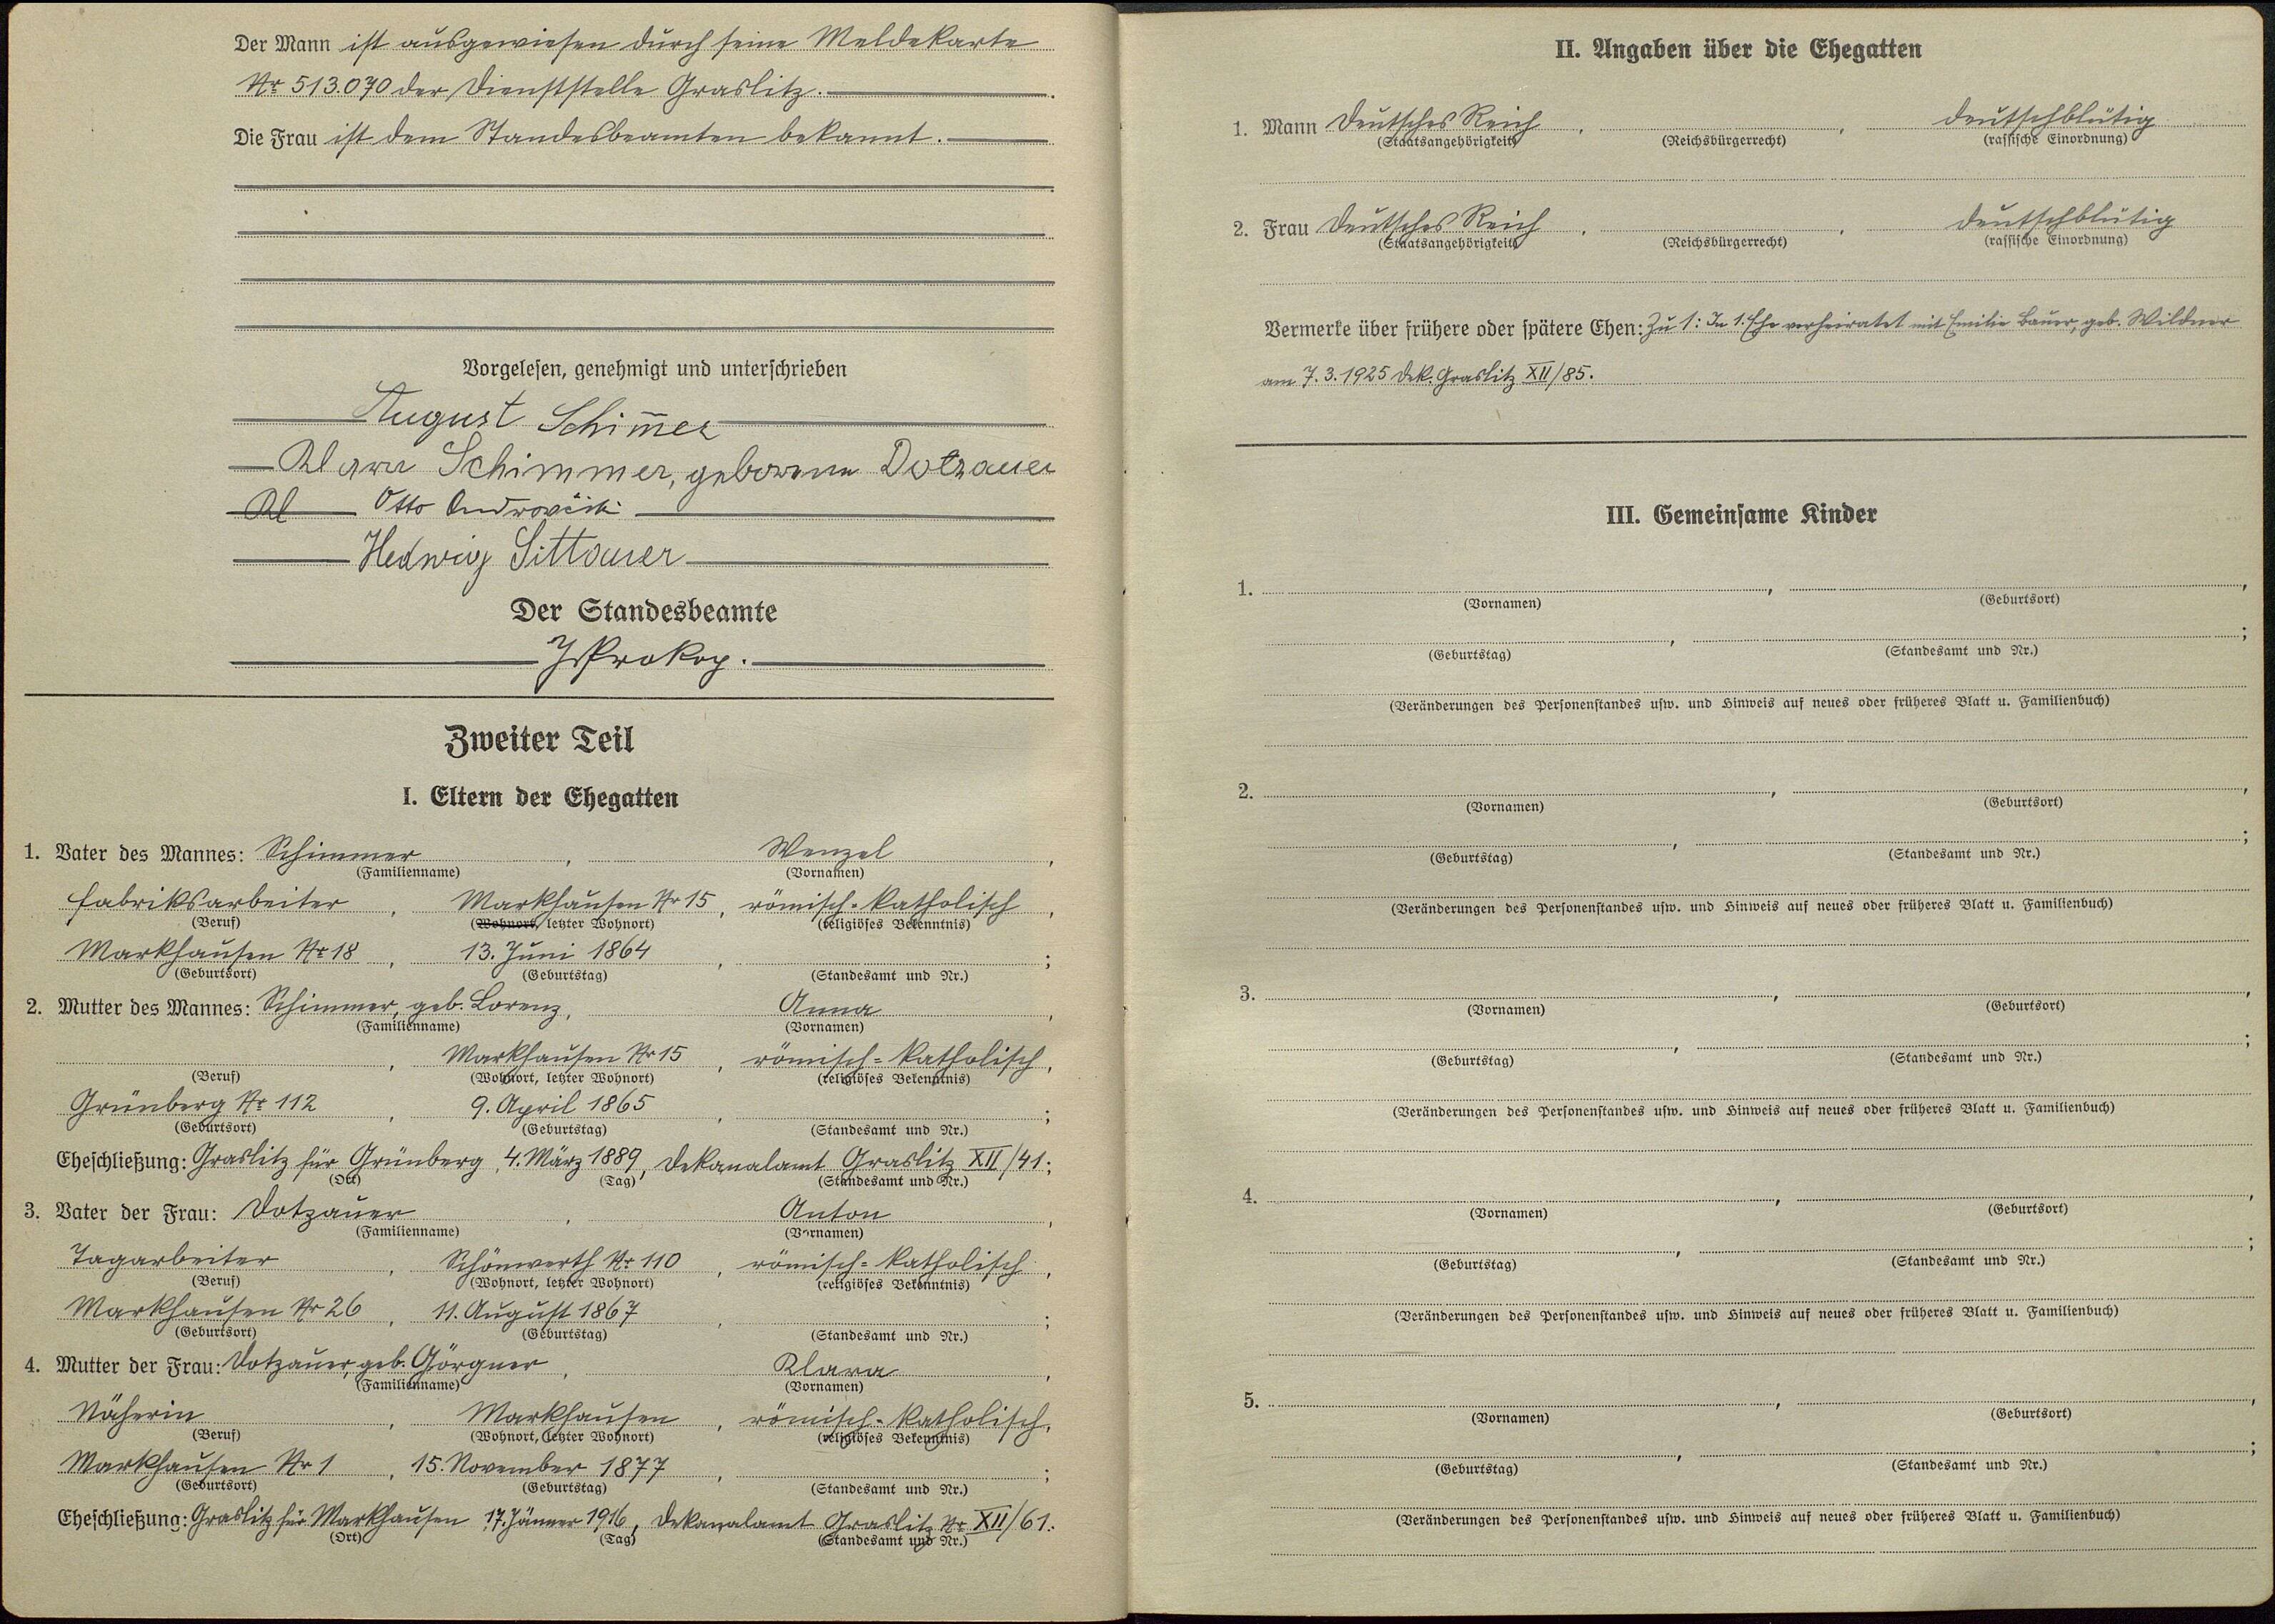 Der Mann ist ausgewiesen durch seine Meldekarte
Nr 513.070 der Dienststelle Graslitz.
Die Frau ist dem Standesbeamten bekannt.
Vorgelesen, genehmigt und unterschrieben
August Schim̅er
Klara Schimmer, geborene Dotzauer
Kl Otto
Hedwig Sittauer
Der Standesbeamte
Prokop.
Zweiter Teil
I. Eltern der Ehegatten
1. Vater des Mannes: Schimmer, Wenzel,
(Familienname) (Vornamen)
Fabriksarbeiter, Markhausen Nr 15, römisch-katholisch,
(Beruf) (Wohnort, letzter Wohnort) (religiöses Bekenntnis)
Markhausen Nr 18, 13. Juni 1864, ;
(Geburtsort) (Geburtstag) (Standesamt und Nr.)
2. Mutter des Mannes: Schimmer, geb. Lorenz, Anna,
(Familienname) (Vornamen)
, Markhausen Nr 15, römisch=katholisch,
(Beruf) (Wohnort, letzter Wohnort) (religiöses Bekenntnis)
Grünberg Nr 112, 9. April 1865, ;
(Geburtsort) (Geburtstag) (Standesamt und Nr.)
Eheschließung: Graslitz für Grünberg, 4. März 1889, Dekanalamt Graslitz XII/41;
(Ort) (Tag) (Standesamt und Nr.)
3. Vater der Frau: Dotzauer, Anton,
(Familienname) (Vornamen)
Tagarbeiter, Schönwerth Nr 110, römisch=katholisch,
(Beruf) (Wohnort, letzter Wohnort) (religiöses Bekenntnis)
Markhausen Nr 26, 11. August 1867, ;
(Geburtsort) (Geburtstag) (Standesamt und Nr.)
4. Mutter der Frau: Dotzauer, geb. Görgner, Klara,
(Familienname) (Vornamen)
Näherin, Markhausen, römisch-katholisch,
(Beruf) (Wohnort, letzter Wohnort) (religiöses Bekenntnis)
Markhausen Nr 1, 15. November 1877, ;
(Geburtsort) (Geburtstag) (Standesamt und Nr.)
Eheschließung: Graslitz für Markhausen, 17. Jänner 1916, Dekanalamt Graslitz Nr XII/61.
(Ort) (Tag) (Standesamt und Nr.)
II. Angaben über die Ehegatten
1. Mann Deutsches Reich, , deutschblütig
(Staatsangehörigkeit) (Reichsbürgerrecht) (rassische Einordnung)
2. Frau Deutsches Reich, , deutschblütig
(Staatsangehörigkeit) (Reichsbürgerrecht) (rassische Einordnung)
Vermerke über frühere oder spätere Ehen: Zu 1: In 1. Ehe verheiratet mit Emilie Bauer, geb. Wildner
am 7.3.1925 Dek. Graslitz XII/85.
III. Gemeinsame Kinder
1. , ,
(Vornamen) (Geburtsort)
, ;
(Geburtstag) (Standesamt und Nr.)
(Veränderungen des Personenstandes usw. und Hinweis auf neues oder früheres Blatt u. Familienbuch)
2. , ,
(Vornamen) (Geburtsort)
, ;
(Geburtstag) (Standesamt und Nr.)
(Veränderungen des Personenstandes usw. und Hinweis auf neues oder früheres Blatt u. Familienbuch)
3. , ,
(Vornamen) (Geburtsort)
, ;
(Geburtstag) (Standesamt und Nr.)
(Veränderungen des Personenstandes usw. und Hinweis auf neues oder früheres Blatt u. Familienbuch)
4. , ,
(Vornamen) (Geburtsort)
, ;
(Geburtstag) (Standesamt und Nr.)
(Veränderungen des Personenstandes usw. und Hinweis auf neues oder früheres Blatt u. Familienbuch)
5. , ,
(Vornamen) (Geburtsort)
, ;
(Geburtstag) (Standesamt und Nr.)
(Veränderungen des Personenstandes usw. und Hinweis auf neues oder früheres Blatt u. Familienbuch)